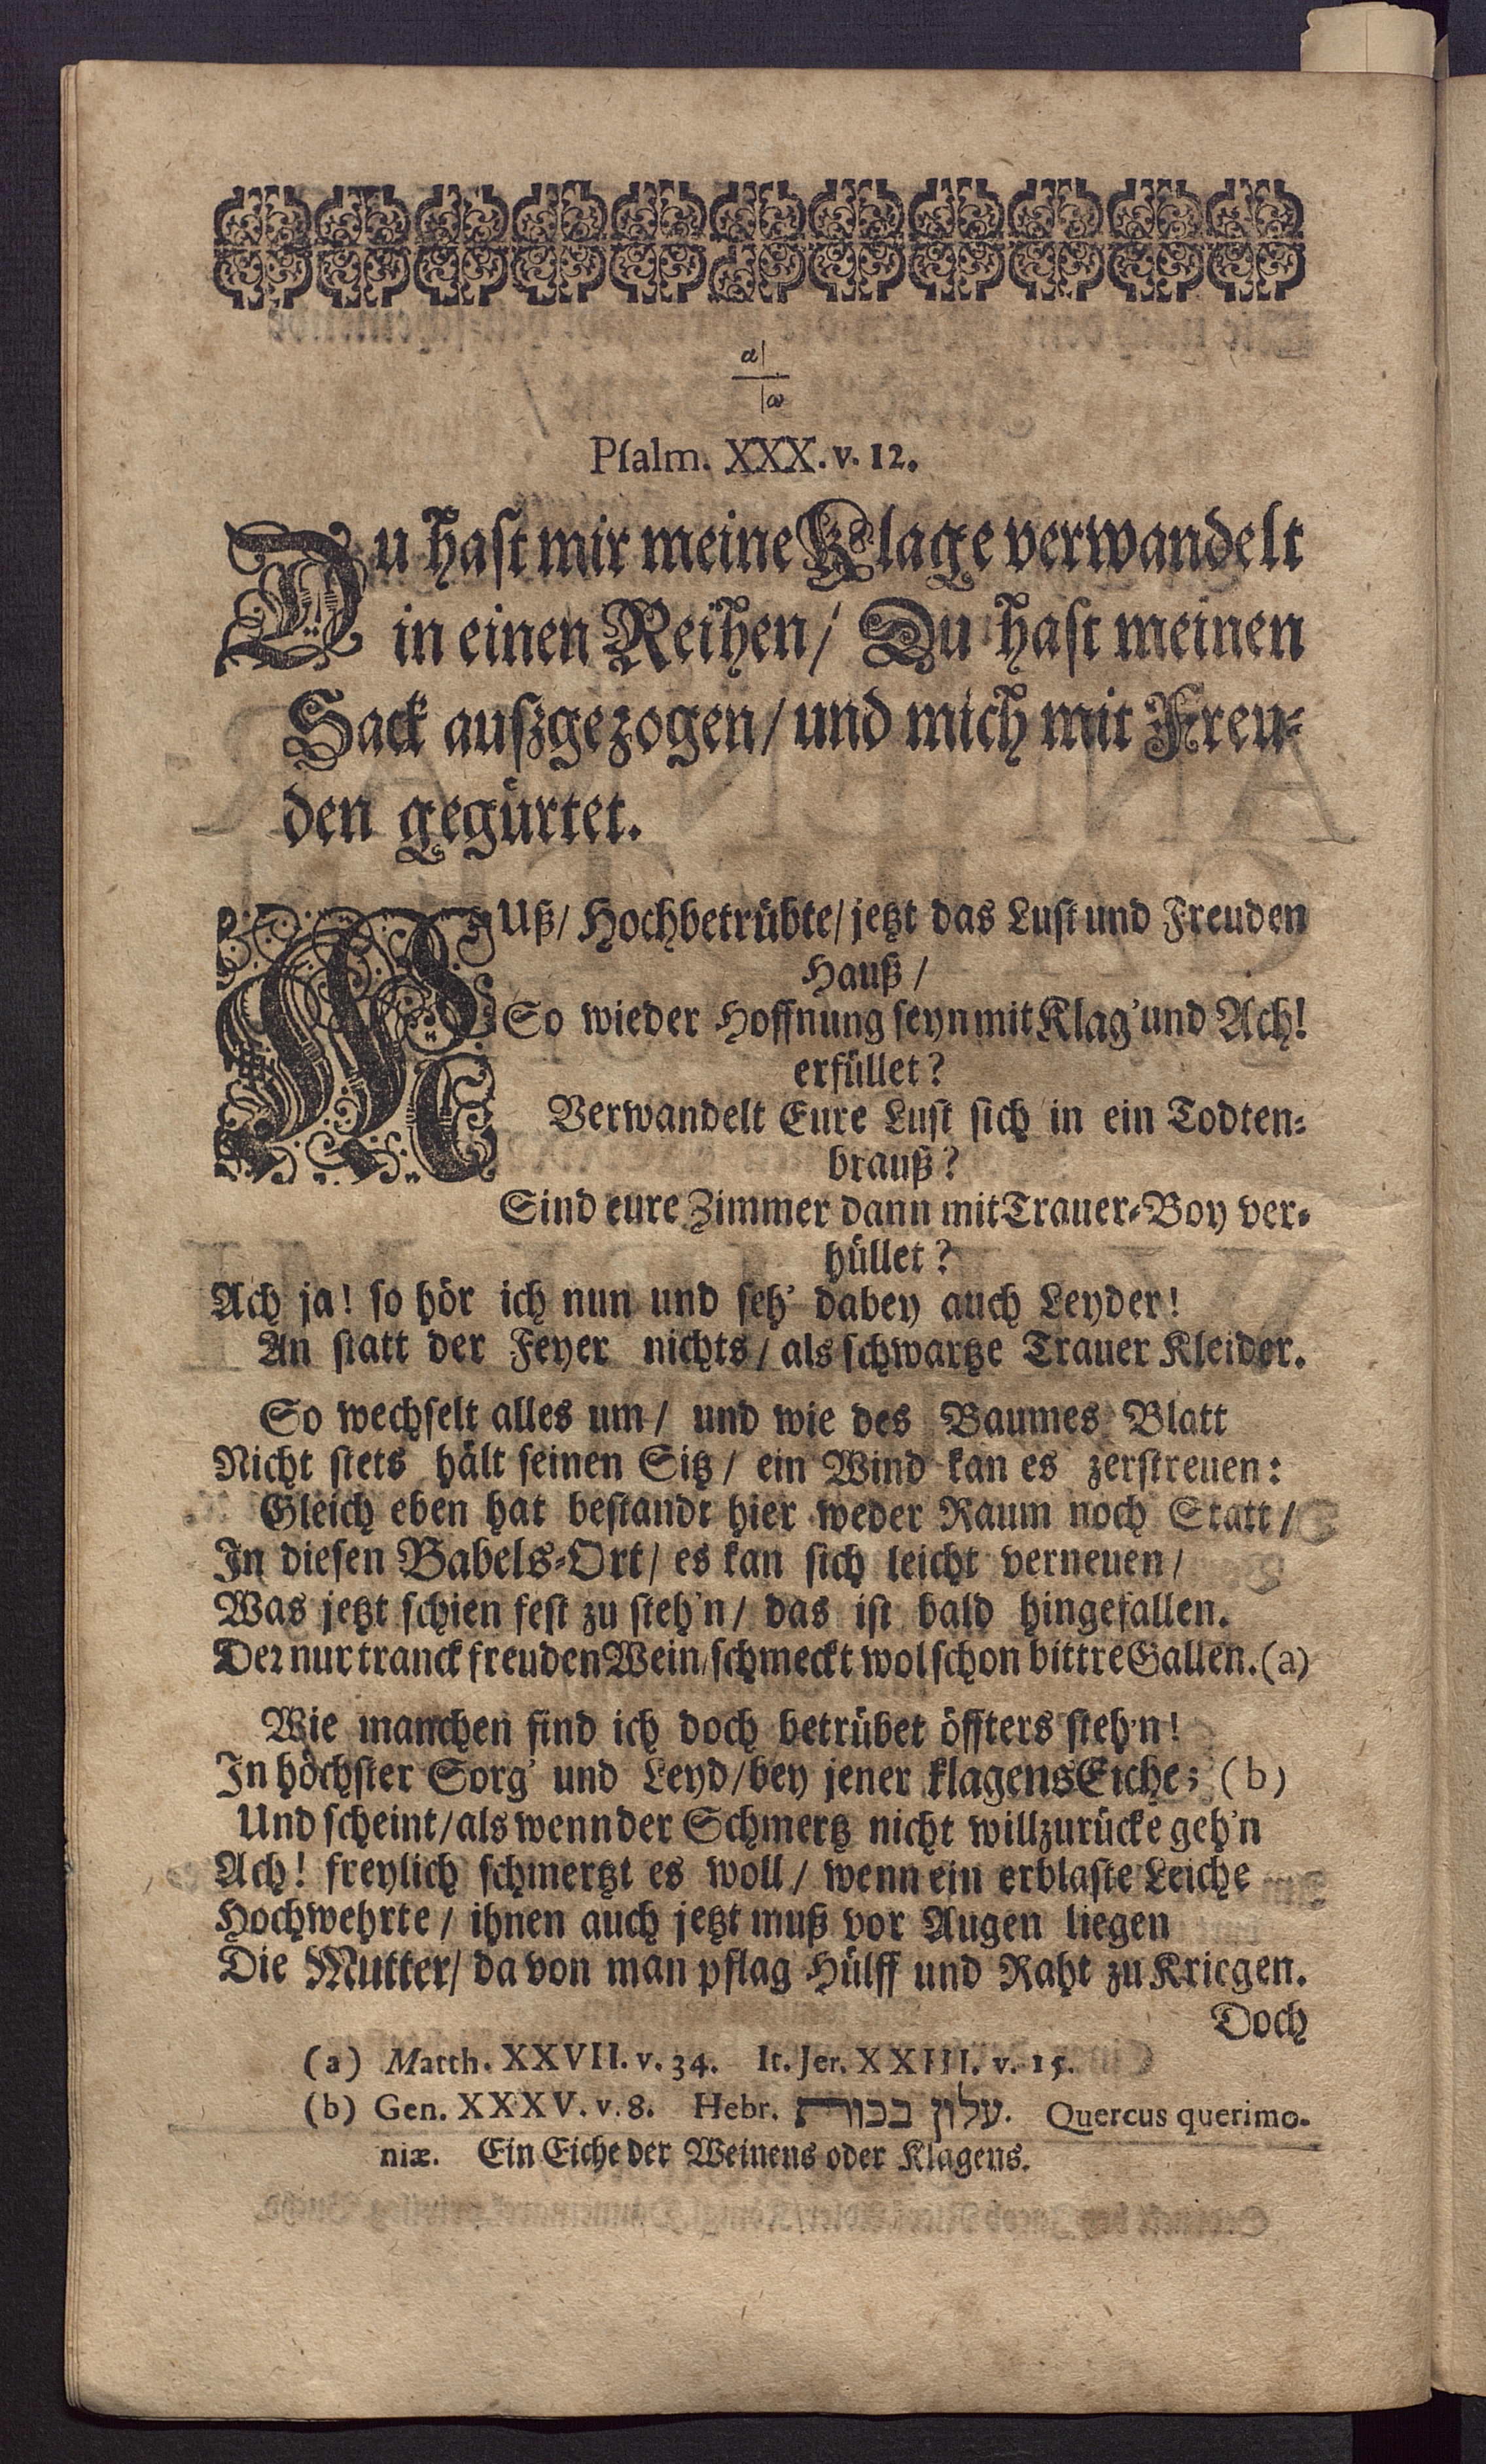 α
ω
Psalm. XXX. v. 12.
Du hast mir meine Klage verwandelt
in einen Reihen/ Du hast meinen
Sack auszgezogen/ und mich mit Freu-
den gegürtet.
MUß/ Hochbetrübte/ jetzt das Lust und Freuden
Hauß/
So wieder Hoffnung seyn mit Klag' und Ach!
erfüllet?
Verwandelt Eure Lust sich in ein Todten-
brauß?
Sind eure Zimmer dann mit Trauer-Boy ver-
hüllet?
Ach ja! so hör ich nun und seh' dabey auch Leyder!
An statt der Feyer nichts/ als schwartze Trauer Kleider.
So wechselt alles um/ und wie des Baumes Blatt
Nicht stets hält seinen Sitz/ ein Wind kan es zerstreuen:
Gleich eben hat bestandt hier weder Raum noch Statt/
In diesen Babels-Ort/ es kan sich leicht verneuen/
Was jetzt schien fest zu steh'n/ das ist bald hingefallen.
Der nur tranck freuden Wein/ schmeckt wol schon bittre Gallen. (a)
Wie manchen find ich doch betrübet öffters steh'n!
In höchster Sorg' und Leyd/ bey jener klagens Eiche; (b)
Und scheint/ als wenn der Schmertz nicht will zurücke geh'n
Ach! freylich schmertzt es woll/ wenn ein erblaste Leiche
Hochwehrte/ ihnen auch jetzt muß vor Augen liegen
Die Mutter/ da von man pflag Hülff und Raht zu Kriegen.
Doch
(a) Matth. XXVII. v. 34. It. Jer. XXIII. v. 15.
(b) Gen. XXXV. v. 8. Hebr. עלון בכורת. Quercus querimo-
niæ. Ein Eiche der Weinens oder Klagens.